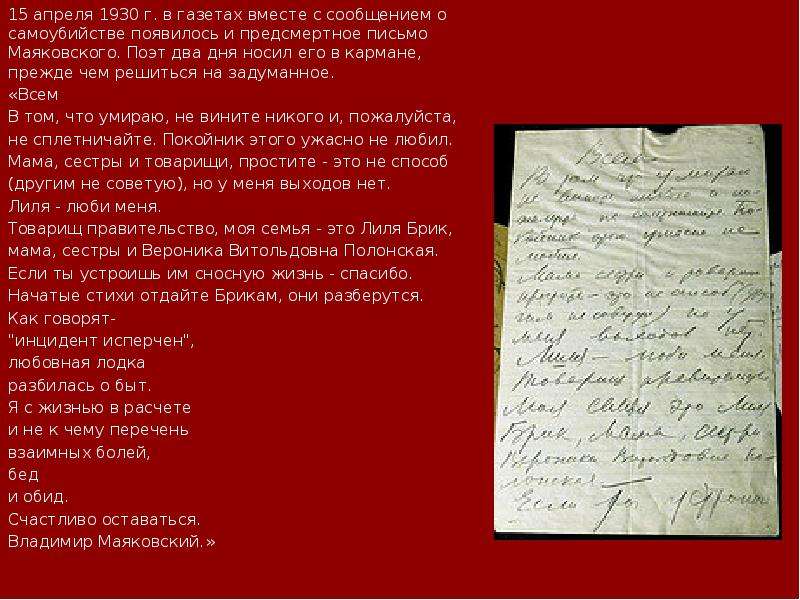 15 апреля 1930 г. в газетах вместе с сообщением о
самоубийстве появилось и предсмертное письмо
Маяковского. Поэт два дня носил его в кармане,
прежде чем решиться на задуманное.
«Всем
В том, что умираю, не вините никого и, пожалуйста,
не сплетничайте. Покойник этого ужасно не любил.
Мама, сестры и товарищи, простите - это не способ
(другим не советую), но у меня выходов нет.
Лиля - люби меня.
Товарищ правительство, моя семья - это Лиля Брик,
мама, сестры и Вероника Витольдовна Полонская.
Если ты устроишь им сносную жизнь - спасибо.
Начатые стихи отдайте Брикам, они разберутся.
Как говорят-
"инцидент исперчен",
любовная лодка
разбилась о быт.
Я с жизнью в расчете
и не к чему перечень
взаимных болей,
бед
и обид.
Счастливо оставаться.
Владимир Маяковский.»
Всем
В том что умираю
не вините никого и по-
жалуйста не сплетничайте. По-
койник этого ужасно не
любил.
Мама сестры и товарищи
простите – это не способ (дру-
гим не советую) но у
меня выходов нет.
Лиля – люби меня.
Товарищ правительство
моя семья это Лиля
Брик, мама, сестры
и Вероника Витольдовна По-
лонская.
Если ты устроишь